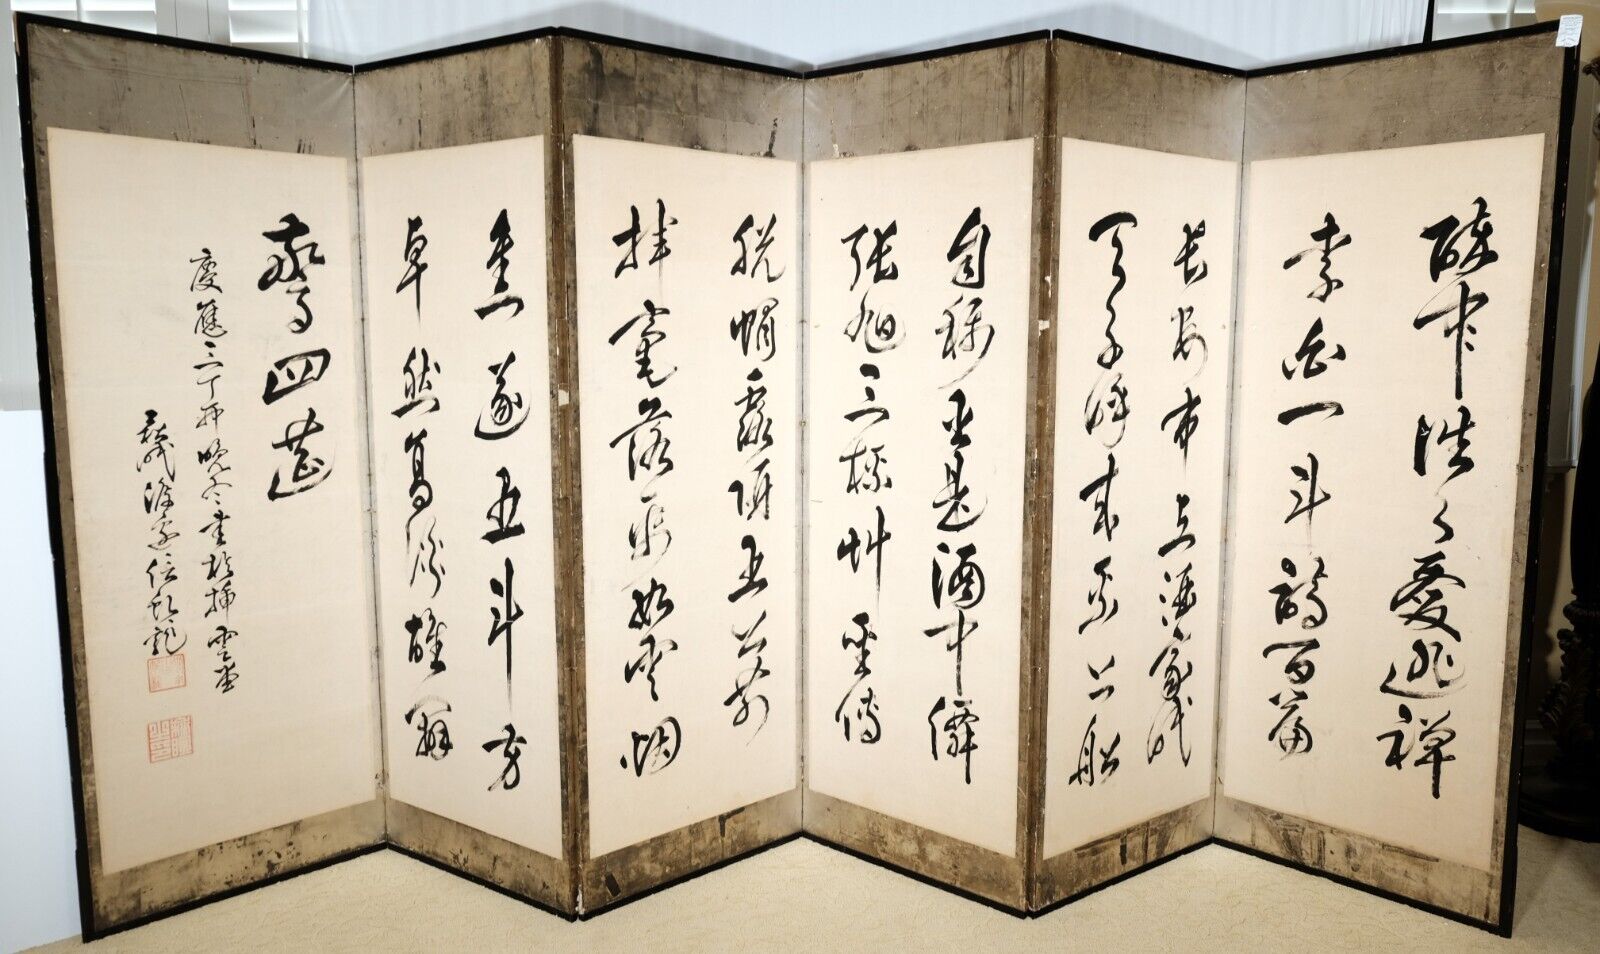 醉中往々愛逃禪
李白一斗詩百篇
長安市上酒家眠
天子呼来不上船
自稱臣是酒中僊
張旭三杯艸聖傳
脱帽露頂王公前
揮毫落紙如雲烟
焦遂五斗方
卓然高談雄辯
驚四筵
慶應三丁卯晩冬書於挿雲堂